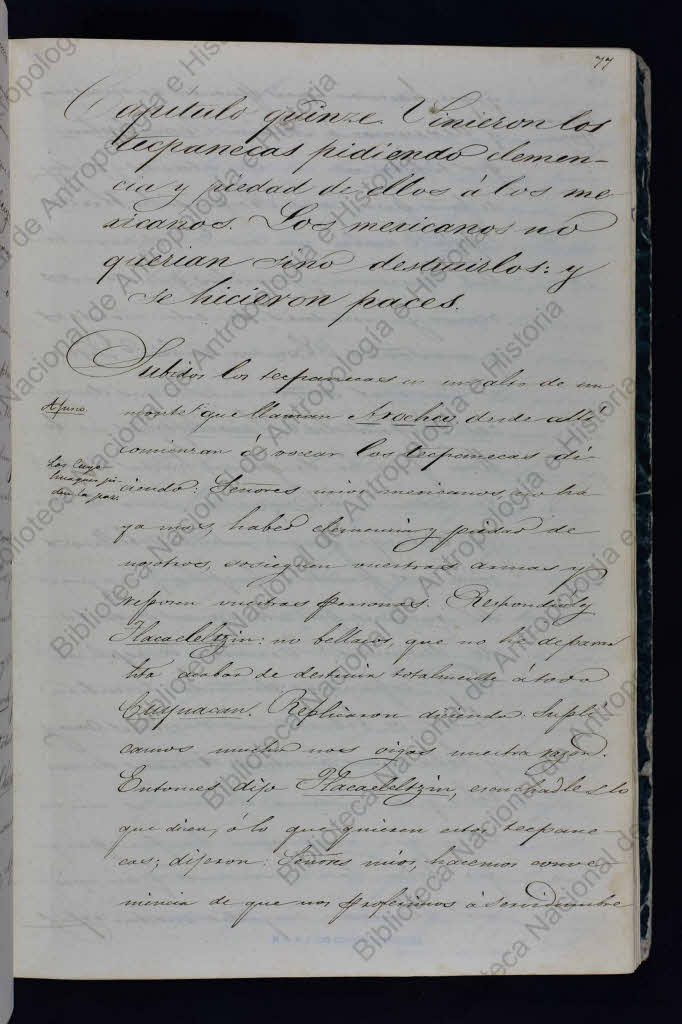 77
Capítulo quinze. Vinieron los
tecpanecas pidiendo clemen-
cia y piedad de ellos á los me-
xicanos. Los mexicanos no
querian sino destruirlos: y
se hicieron paces.
Subidos los tecpanecas en un alto de un
Ajusco.
monte que llaman Axochco desde allí
comienzan á vocear los tecpanecas di-
Los Cuyo
huaques pi-
den la paz.
ciendo: Señores mios mexicanos, no ha
ya mas, habed clemencia y piedad de
nosotros, sosieguen vuestras armas y
reposen vuestras personas. Respondioly
Tlacaeleltzin: no bellacos, que no he de parar
hta acabar de destruir totalmente á todo
Cuyuacan. Replicaron diciendo: Supli
camos mucho nos oigas nuestra razon.
Entonces dijo Tlacaeleltzin, escuchadles lo
que dicen, ó lo que quieren estos tecpane-
cas; dijeron: Señores mios, hacemos conve-
niencia de que nos proferimos á servidumbre
Biblioteca Nacional de Antropología e Historia